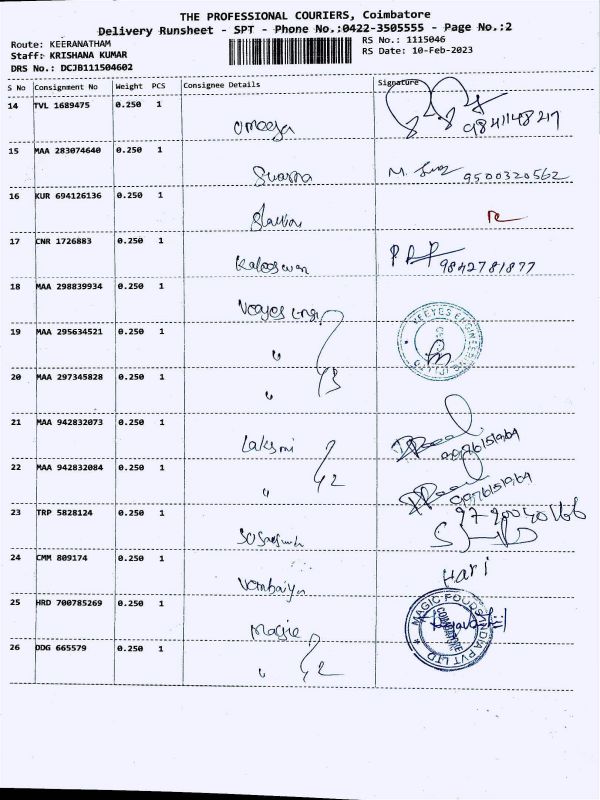 THE PROFESSIONAL COURIERS, Coimbatore
Delivery Runsheet - SPT - Phone No.:0422-3505555 - Page No.:2
Route: KEERANATHAM
RS No.: 1115046
Staff: KRISHANA KUMAR
RS Date: 10-Feb-2023
DRS No.: DCJB111504602
S No Consignment No Weight PCS Consignee Details Signature
14 TVL 1689475 0.250 1
Omega 9841148217
15 MAA 283074640 0.250 1
Swarna M. 9500320562
16 KUR 694126136 0.250 1
17 CNR 1726883 0.250 1
Kaleeswari 9842781877
18 MAA 298839934 0.250 1
Veeyes Engi
VEEYES ENGINEERING (P) LTD
19 MAA 295634521 0.250 1
"
20 MAA 297345828 0.250 1
" /3
21 MAA 942832073 0.250 1
Laksmi 9976151969
22 MAA 942832084 0.250 1
" /2 9976151969
23 TRP 5828124 0.250 1
9790040166
24 CMM 809174 0.250 1
Hari
25 HRD 700785269 0.250 1
Magic
MAGIC FOODS INDIA PVT LTD
COIMBATORE
26 DDG 665579 0.250 1
" /2